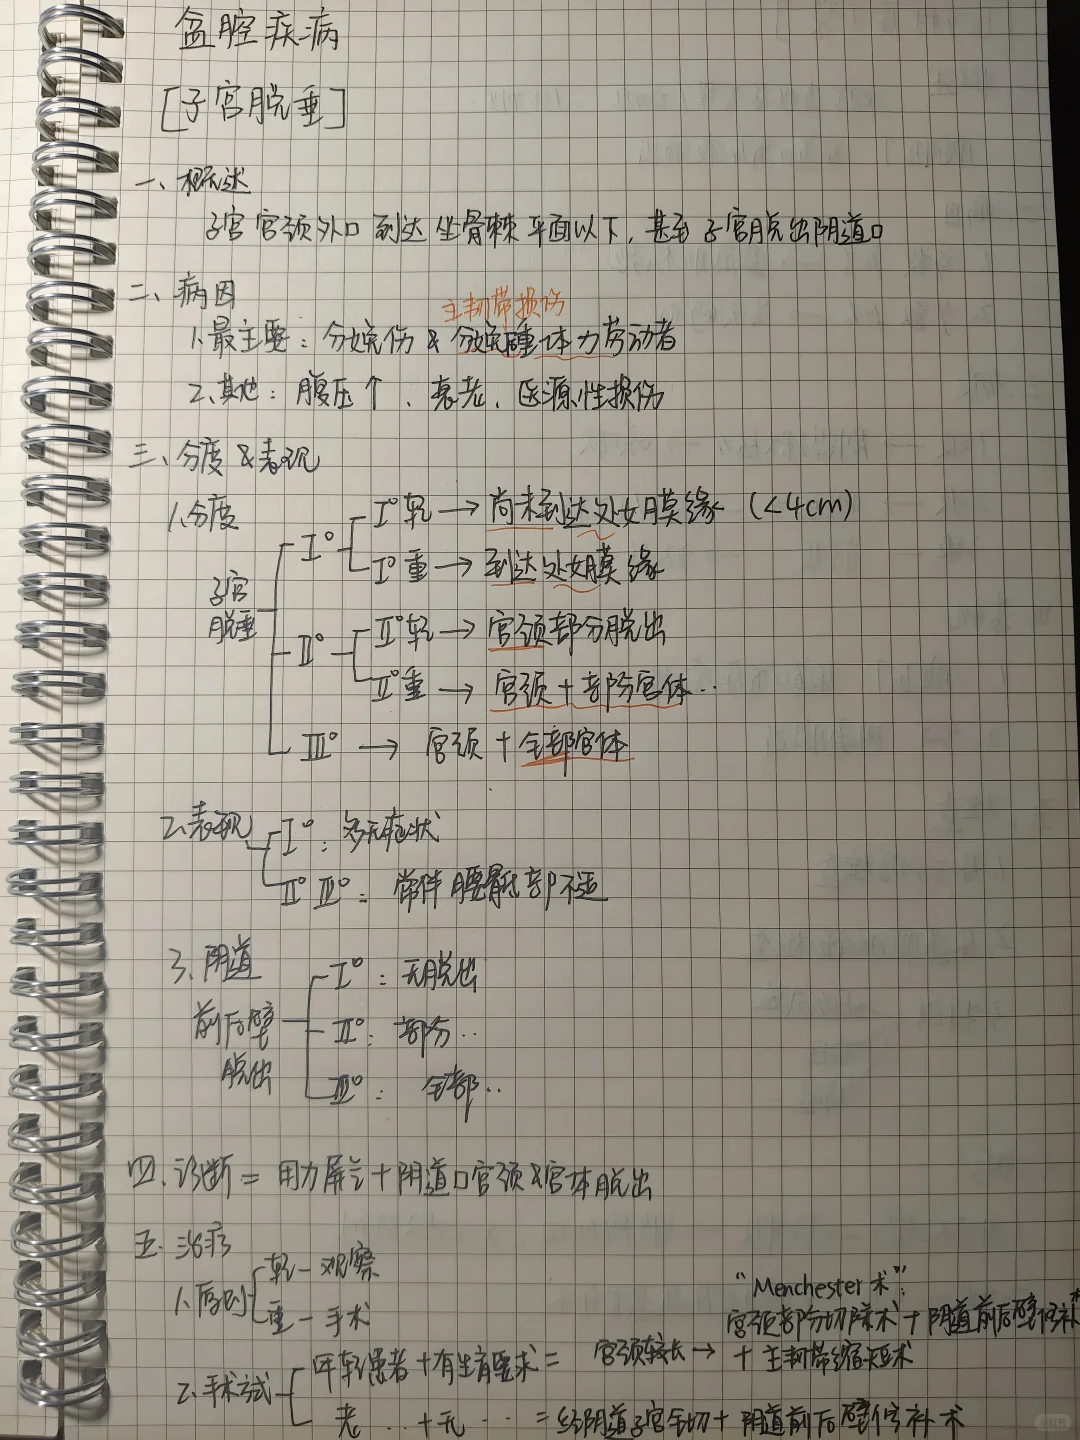 盆腔疾病
[子宫脱垂]
一、概述
子宫宫颈外口到达坐骨棘平面以下,甚至子宫脱出阴道口
二、病因
主韧带损伤
1.最主要:分娩伤&分娩重体力劳动者
2.其他:腹压↑、衰老、医源性损伤
三、分度&表现
1.分度
子宫脱垂
I°
I°轻→尚未到达处女膜缘(<4cm)
I°重→到达处女膜缘
II°
II°轻→宫颈部分脱出
II°重→宫颈+部分宫体..
III°→宫颈+全部宫体
2.表现
I°:多无症状
II° III°:常伴腰骶部不适
3.阴道
前后壁
脱出
I°:无脱出
II°:部分..
III°:全部..
四.诊断=用力屏气+阴道口宫颈&宫体脱出
五.治疗
1.原则
轻-观察
重-手术
2.手术方式
年轻患者+有生育要求=宫颈较长→
"Menchester术":
宫颈部分切除术+阴道前后壁修补术
+主韧带缩短术
老...+无...=经阴道子宫全切+阴道前后壁修补术